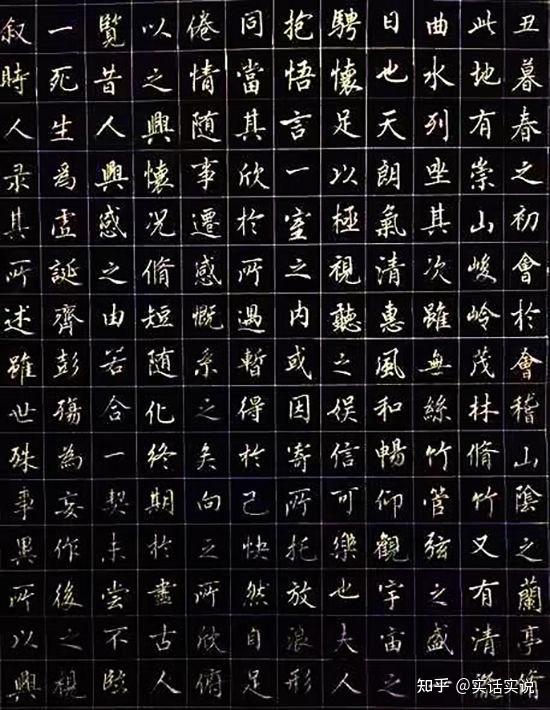 丑暮春之初會於會稽山陰之蘭亭脩
此地有崇山峻岭茂林脩竹又有清流
曲水列坐其次雖無絲竹管弦之盛
日也天朗氣清惠風和暢仰觀宇宙之
騁懷足以極視聽之娛信可樂也夫人
抱悟言一室之内或因寄所托放浪形
同當其欣於所遇暫得於己快然自足
倦情随事遷感慨系之矣向之所欣俯
以之興懷况脩短随化終期於盡古人
覽昔人興感之由若合一契未尝不臨
一死生為虛誕齊彭殤為妄作後之視
叙時人录其所述雖世殊事異所以興
知乎 @实话实说